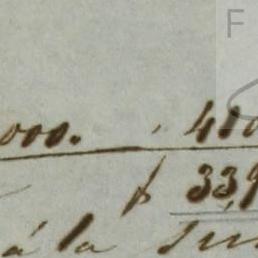 F
000. 410
$ 339
á la su